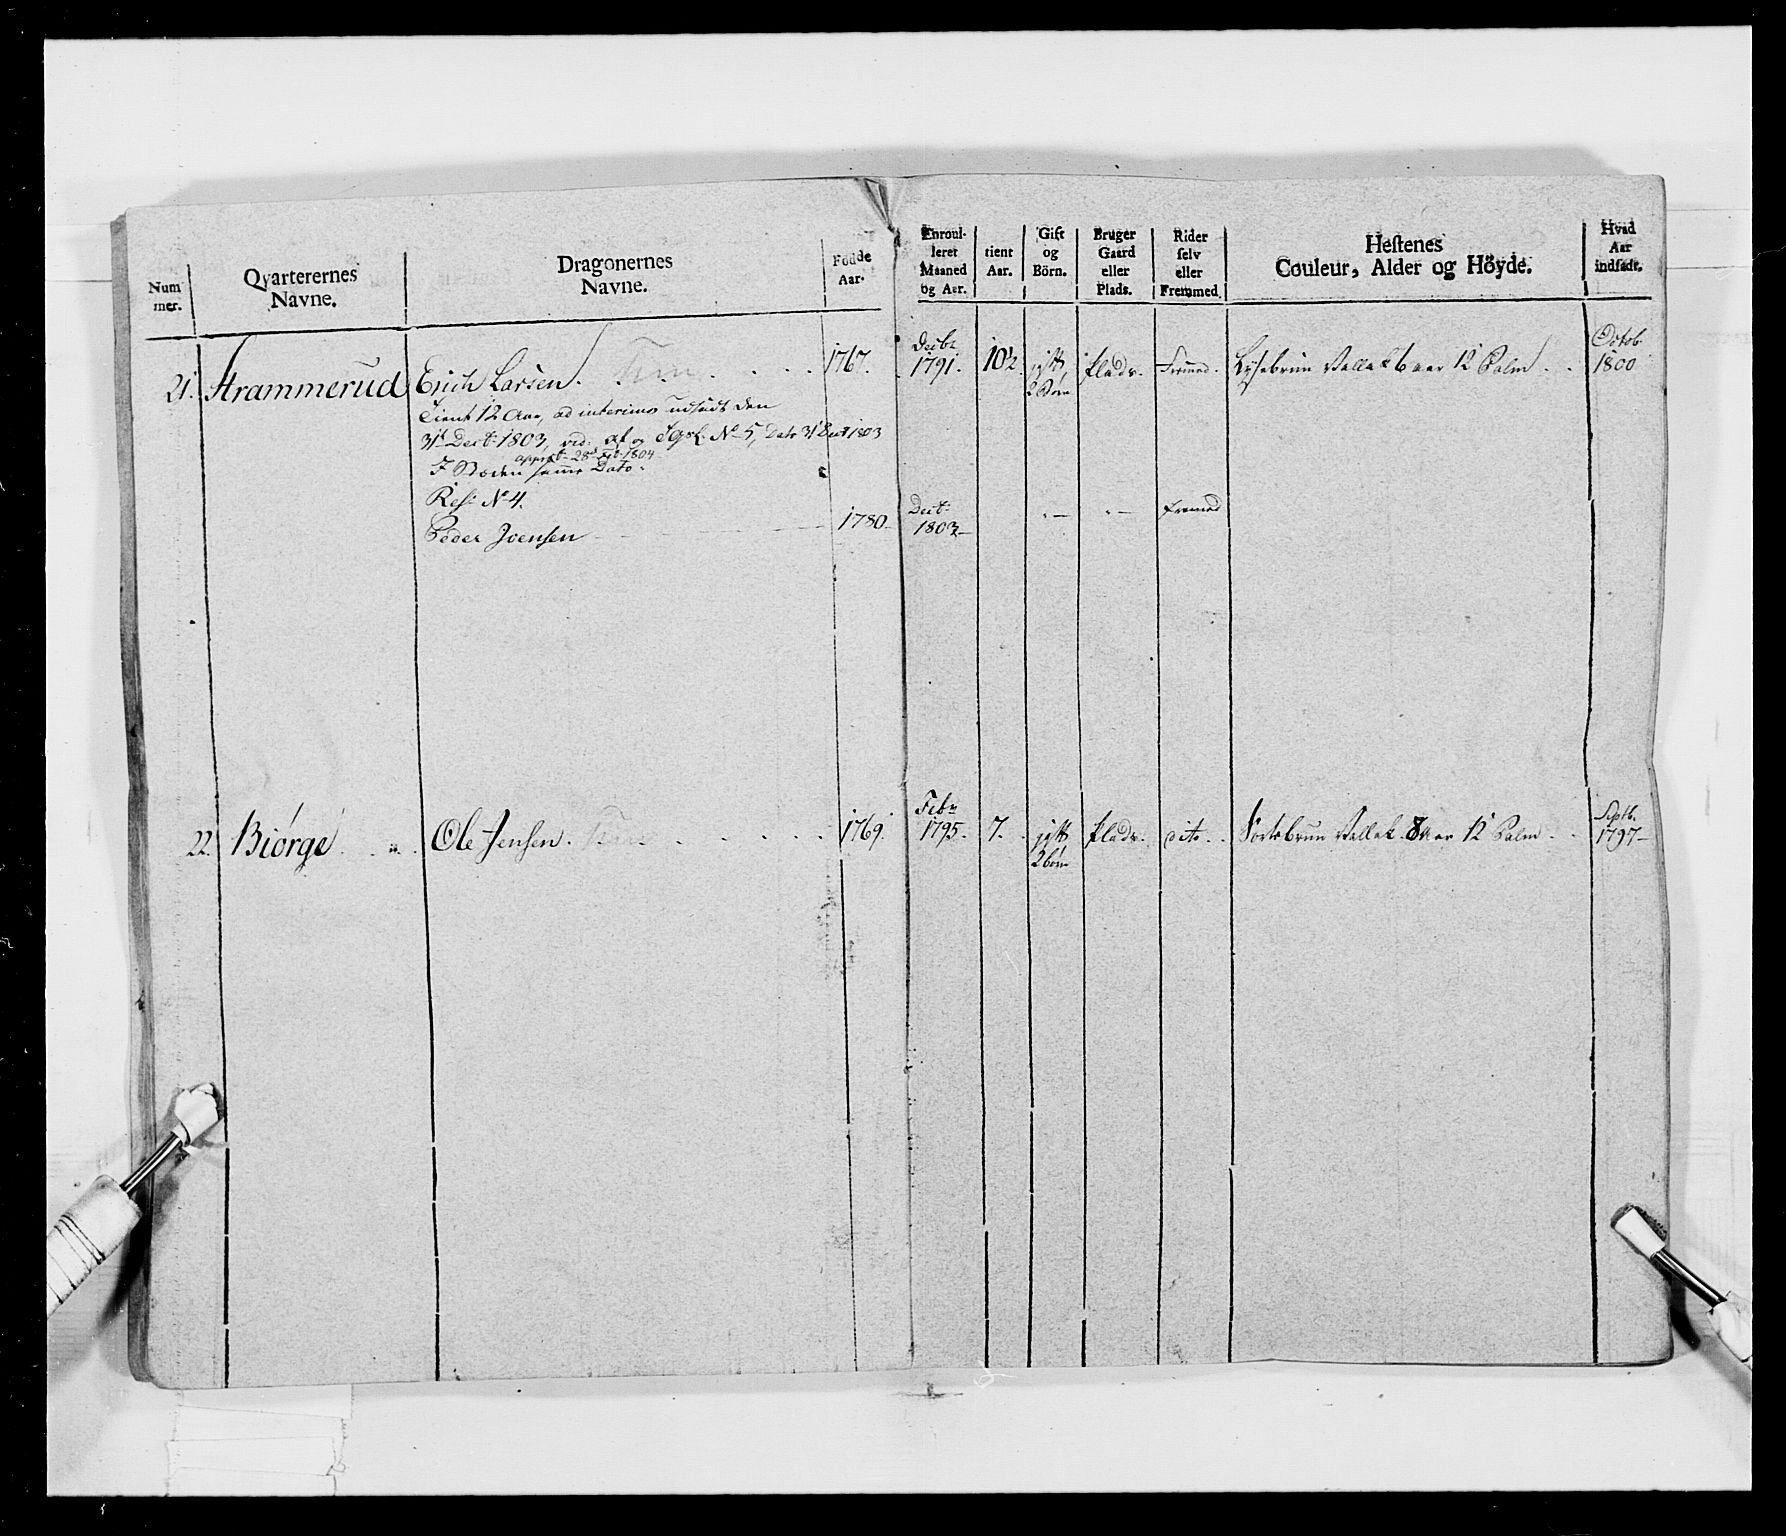 Num
mer.
Qvarterernes
Navne.
Dragonernes
Navne.
Födde
Aar.
Enroul-
leret
Maaned
og Aar.
tient
Aar.
Gift
og
Börn.
Bruger
Gaard
eller
Plads.
Rider
selv
eller
Fremmed.
Hestenes
Couleur, Alder og Höyde.
Hvad
Aar
indsadt.
21. Strammerud Erich Larsen. 1767. Decbr 1791. 10½ gift, 2 Börn Plads. Fremed. Lysebrun Vallak 6 aar 12 Palm Octob 1800
Tient 12 Aar, ad interims udsadt den
31t Decbr: 1803, vid: af og No 5, Dato 31 Dect 1803
appr 28d Feb: 1804
I Steden samme Dato.
Res: No 4.
Peder Joensen 1780 Dect: 1803 - - Fremed
22. Biörge Ole Jensen. 1769. Febr 1795. 7. gift 2 börn Plads. dito Sortebrun Vallak 8 Aar 12 Palm Septb. 1797